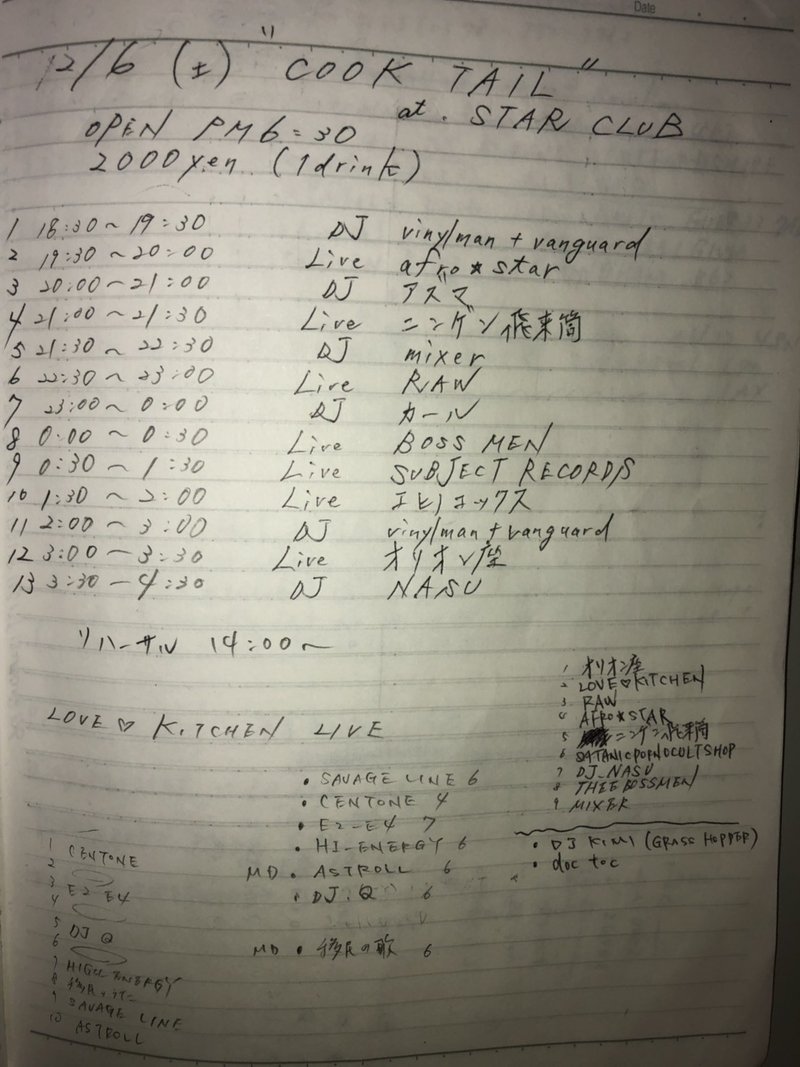 Date
12/6 (土) "COOK TAIL"
at. STAR CLUB
OPEN PM6:30
2000yen (1drink)
1 18:30〜19:30 DJ vinylman + vanguard
2 19:30〜20:00 Live afro★star
3 20:00〜21:00 DJ アズマ
4 21:00〜21:30 Live ニンゲン飛来筒
5 21:30〜22:30 DJ mixer
6 22:30〜23:00 Live RAW
7 23:00〜0:00 DJ カール
8 0:00〜0:30 Live BOSS MEN
9 0:30〜1:30 Live SUBJECT RECORDS
10 1:30〜2:00 Live エヒノコックス
11 2:00〜3:00 DJ vinylman + vanguard
12 3:00ー3:30 Live オリオン座
13 3:30ー4:30 DJ NASU
リハーサル 14:00〜
1 オリオン座
2 LOVE♡KITCHEN
3 RAW
4 AFRO★STAR
5 ニンゲン飛来筒
6 SATANICPORNOCULTSHOP
7 DJ NASU
8 THEE BOSSMEN
9 MIXER
• DJ KIMI (GRASS HOPPER)
• doc toc
LOVE ♡ KITCHEN LIVE
• SAVAGE LINE 6
• CENTONE 4
• E2-E4 7
• HI-ENERGY 6
MD • ASTROLL 6
• DJ. Q 6
MD • 移民の歌 6
1 CENTONE
2
3 E2 E4
4
5 DJ Q
6
7 HIGH ENERGY
8 移民
9 SAVAGE LINE
10 ASTROLL